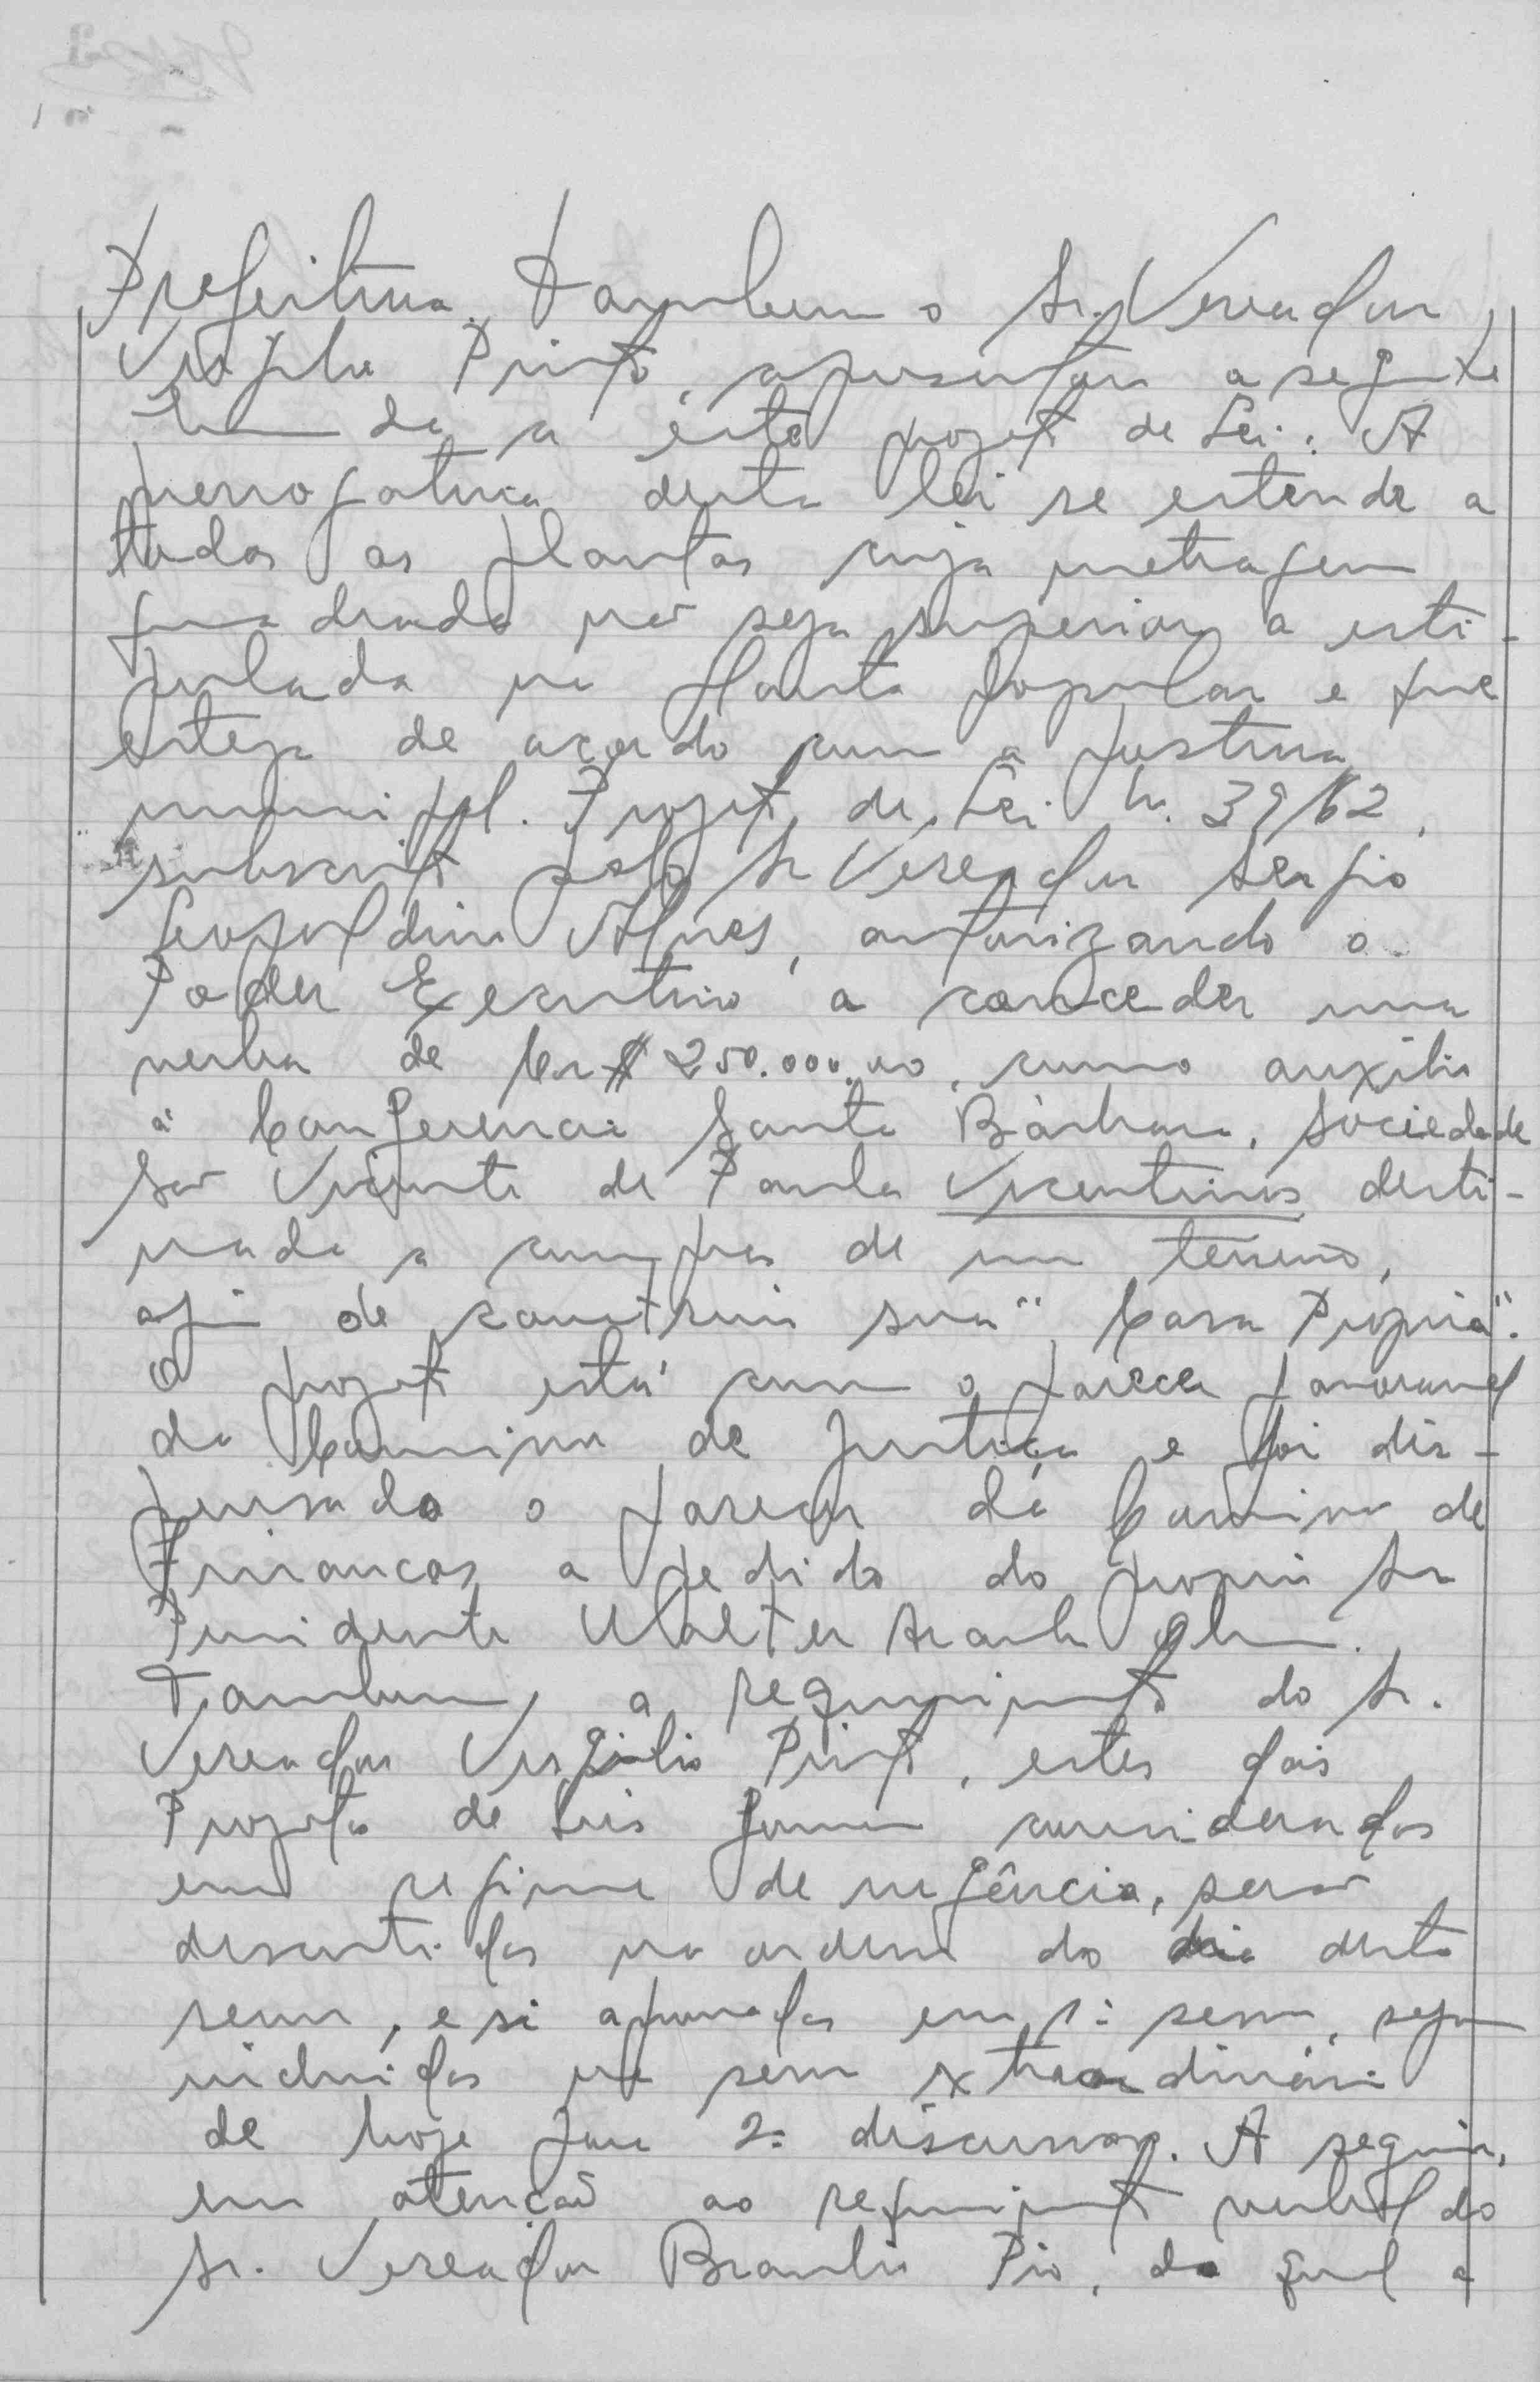 Prefeitura. Tambem o Sr. Vereador
Virgilio Pinto, apresentou a seguinte
Emenda a êste projeto de Lei: A
prerrogativa desta lei se estende a
todas as plantas cuja metragem
quadrada não seja superior a esti-
pulada na Planta Popular e que
esteja de acordo com a postura
municipal. Projeto de Lei n. 39/62,
subscrito pelo Sr Vereador Sergio
Leopoldino Alves, autorizando o
Poder Executivo a conceder uma
verba de Cr$ 250.000.00, como auxilio
à Conferencia Santa Bárbara, Sociedade
São Vicente de Paula Vicentinos desti-
nada a compra de um terreno,
afim de construir sua "Casa Própria".
O projeto está com o parecer favoravel
da Comissão de Justiça e foi dis-
pensado o parecer da Comissão de
Finanças a pedido do proprio Sr
Presidente Walter
Tambem, a requerimento do Sr.
Vereador Virgilio Pinto, estes dois
Projetos de Leis foram considerados
em regime de urgência, serão
discutidos na ordem do dia desta
sessão, e si aprovados em 1ª sessão, sejam
incluidos na sessão extraordinária
de hoje para 2ª discussão. A seguir,
em atenção ao requerimento verbal do
Sr. Vereador Braulio Pio, do qual a